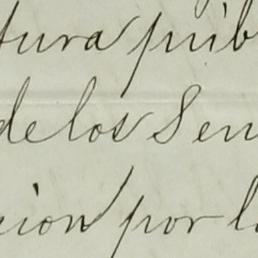 tura púb
de los Sen
cion por l